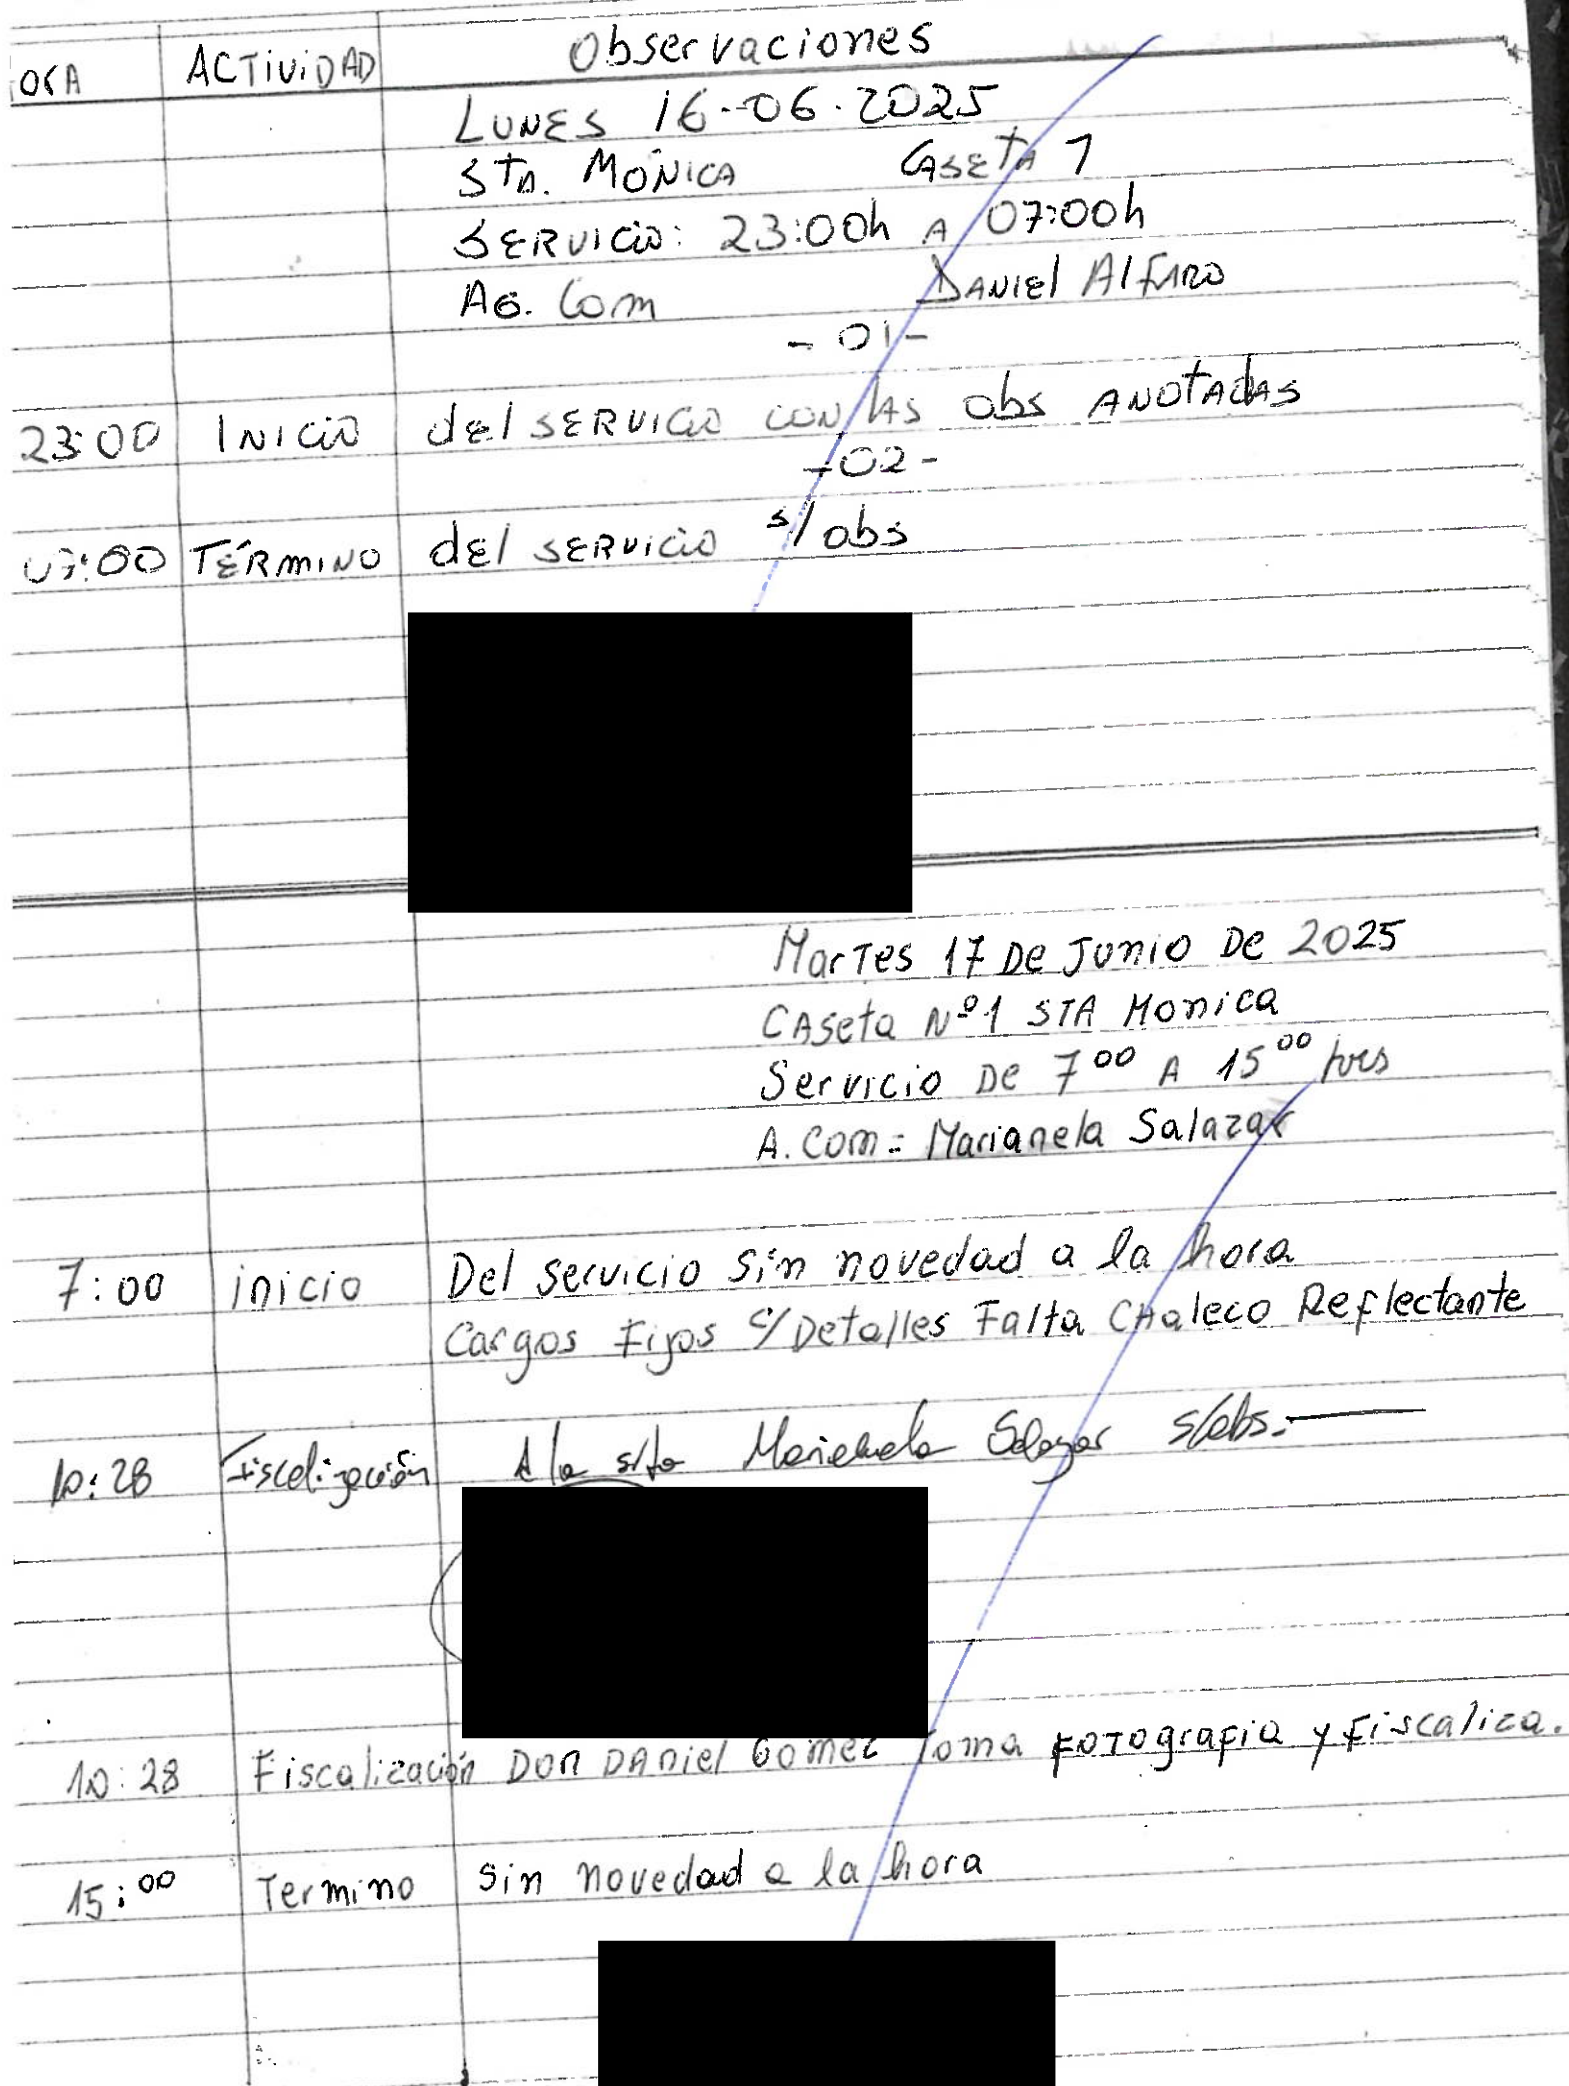 ORA ACTIVIDAD Observaciones
LUNES 16-06-2025
STA. MÓNICA CASETA 1
SERVICIO: 23:00h A 07:00h
AG. Com DANIEL ALFARO
- 01 -
23:00 INICIO del SERVICIO CON LAS obs ANOTADAS
- 02 -
07:00 TÉRMINO del SERVICIO s/obs
Martes 17 De Junio De 2025
CAseta Nº1 STA Monica
Servicio De 7⁰⁰ A 15⁰⁰ hrs
A. Com = Marianela Salazar
7:00 inicio Del servicio sin novedad a la hora
Cargos Fijos S/Detalles Falta CHaleco Reflectante
10:28 Fiscalización A la srta Marianela Salazar s/obs.
10:28 Fiscalización Don DAniel Gomez Toma Fotografia y Fiscaliza.
15:⁰⁰ Termino Sin novedad a la hora